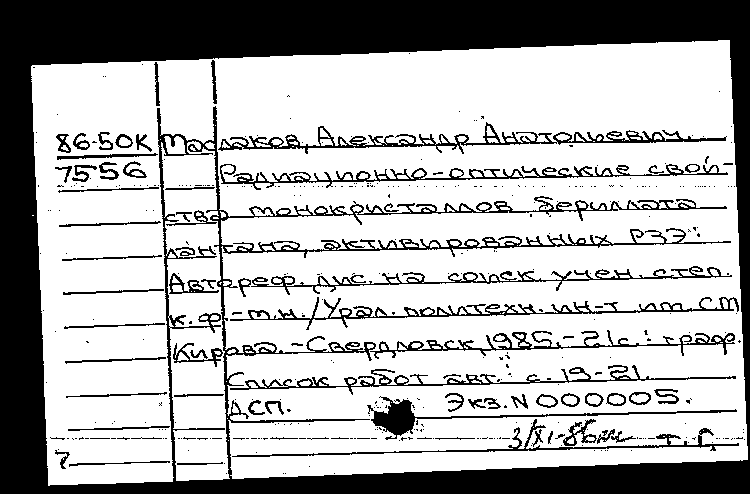 86-50К Маслаков, Александр Анатольевич.
7556 Радиационно-оптические свой-
ства монокристаллов бериллата
лантана, активированных РЗЭ:
Автореф. дис. на соиск. учен. степ.
к. ф.-м.н. / Урал. политехн. ин-т им. С.М.
Кирова. - Свердловск, 1985. - 21с.: граф.
Список работ авт.: с. 19-21.
ДСП. Экз. N 000005.
3/XI-86 т. Г.